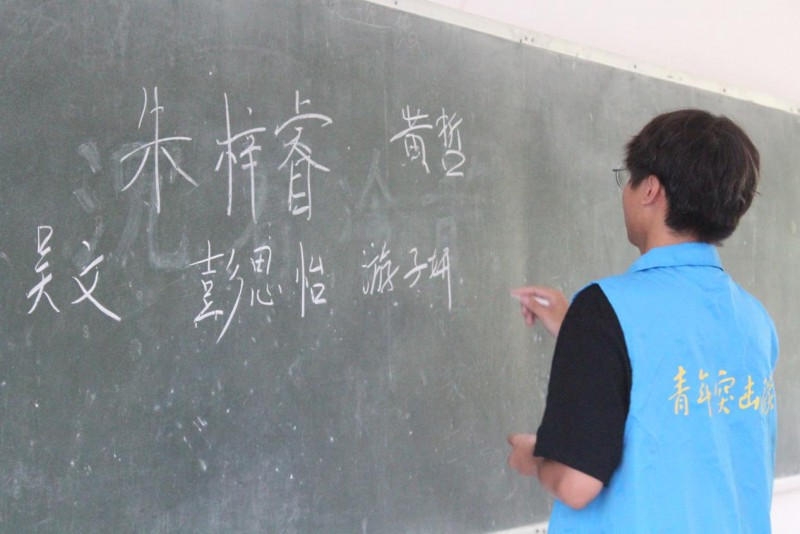 朱梓睿 黄哲
吴文 彭思怡 游子妍
青年突击队